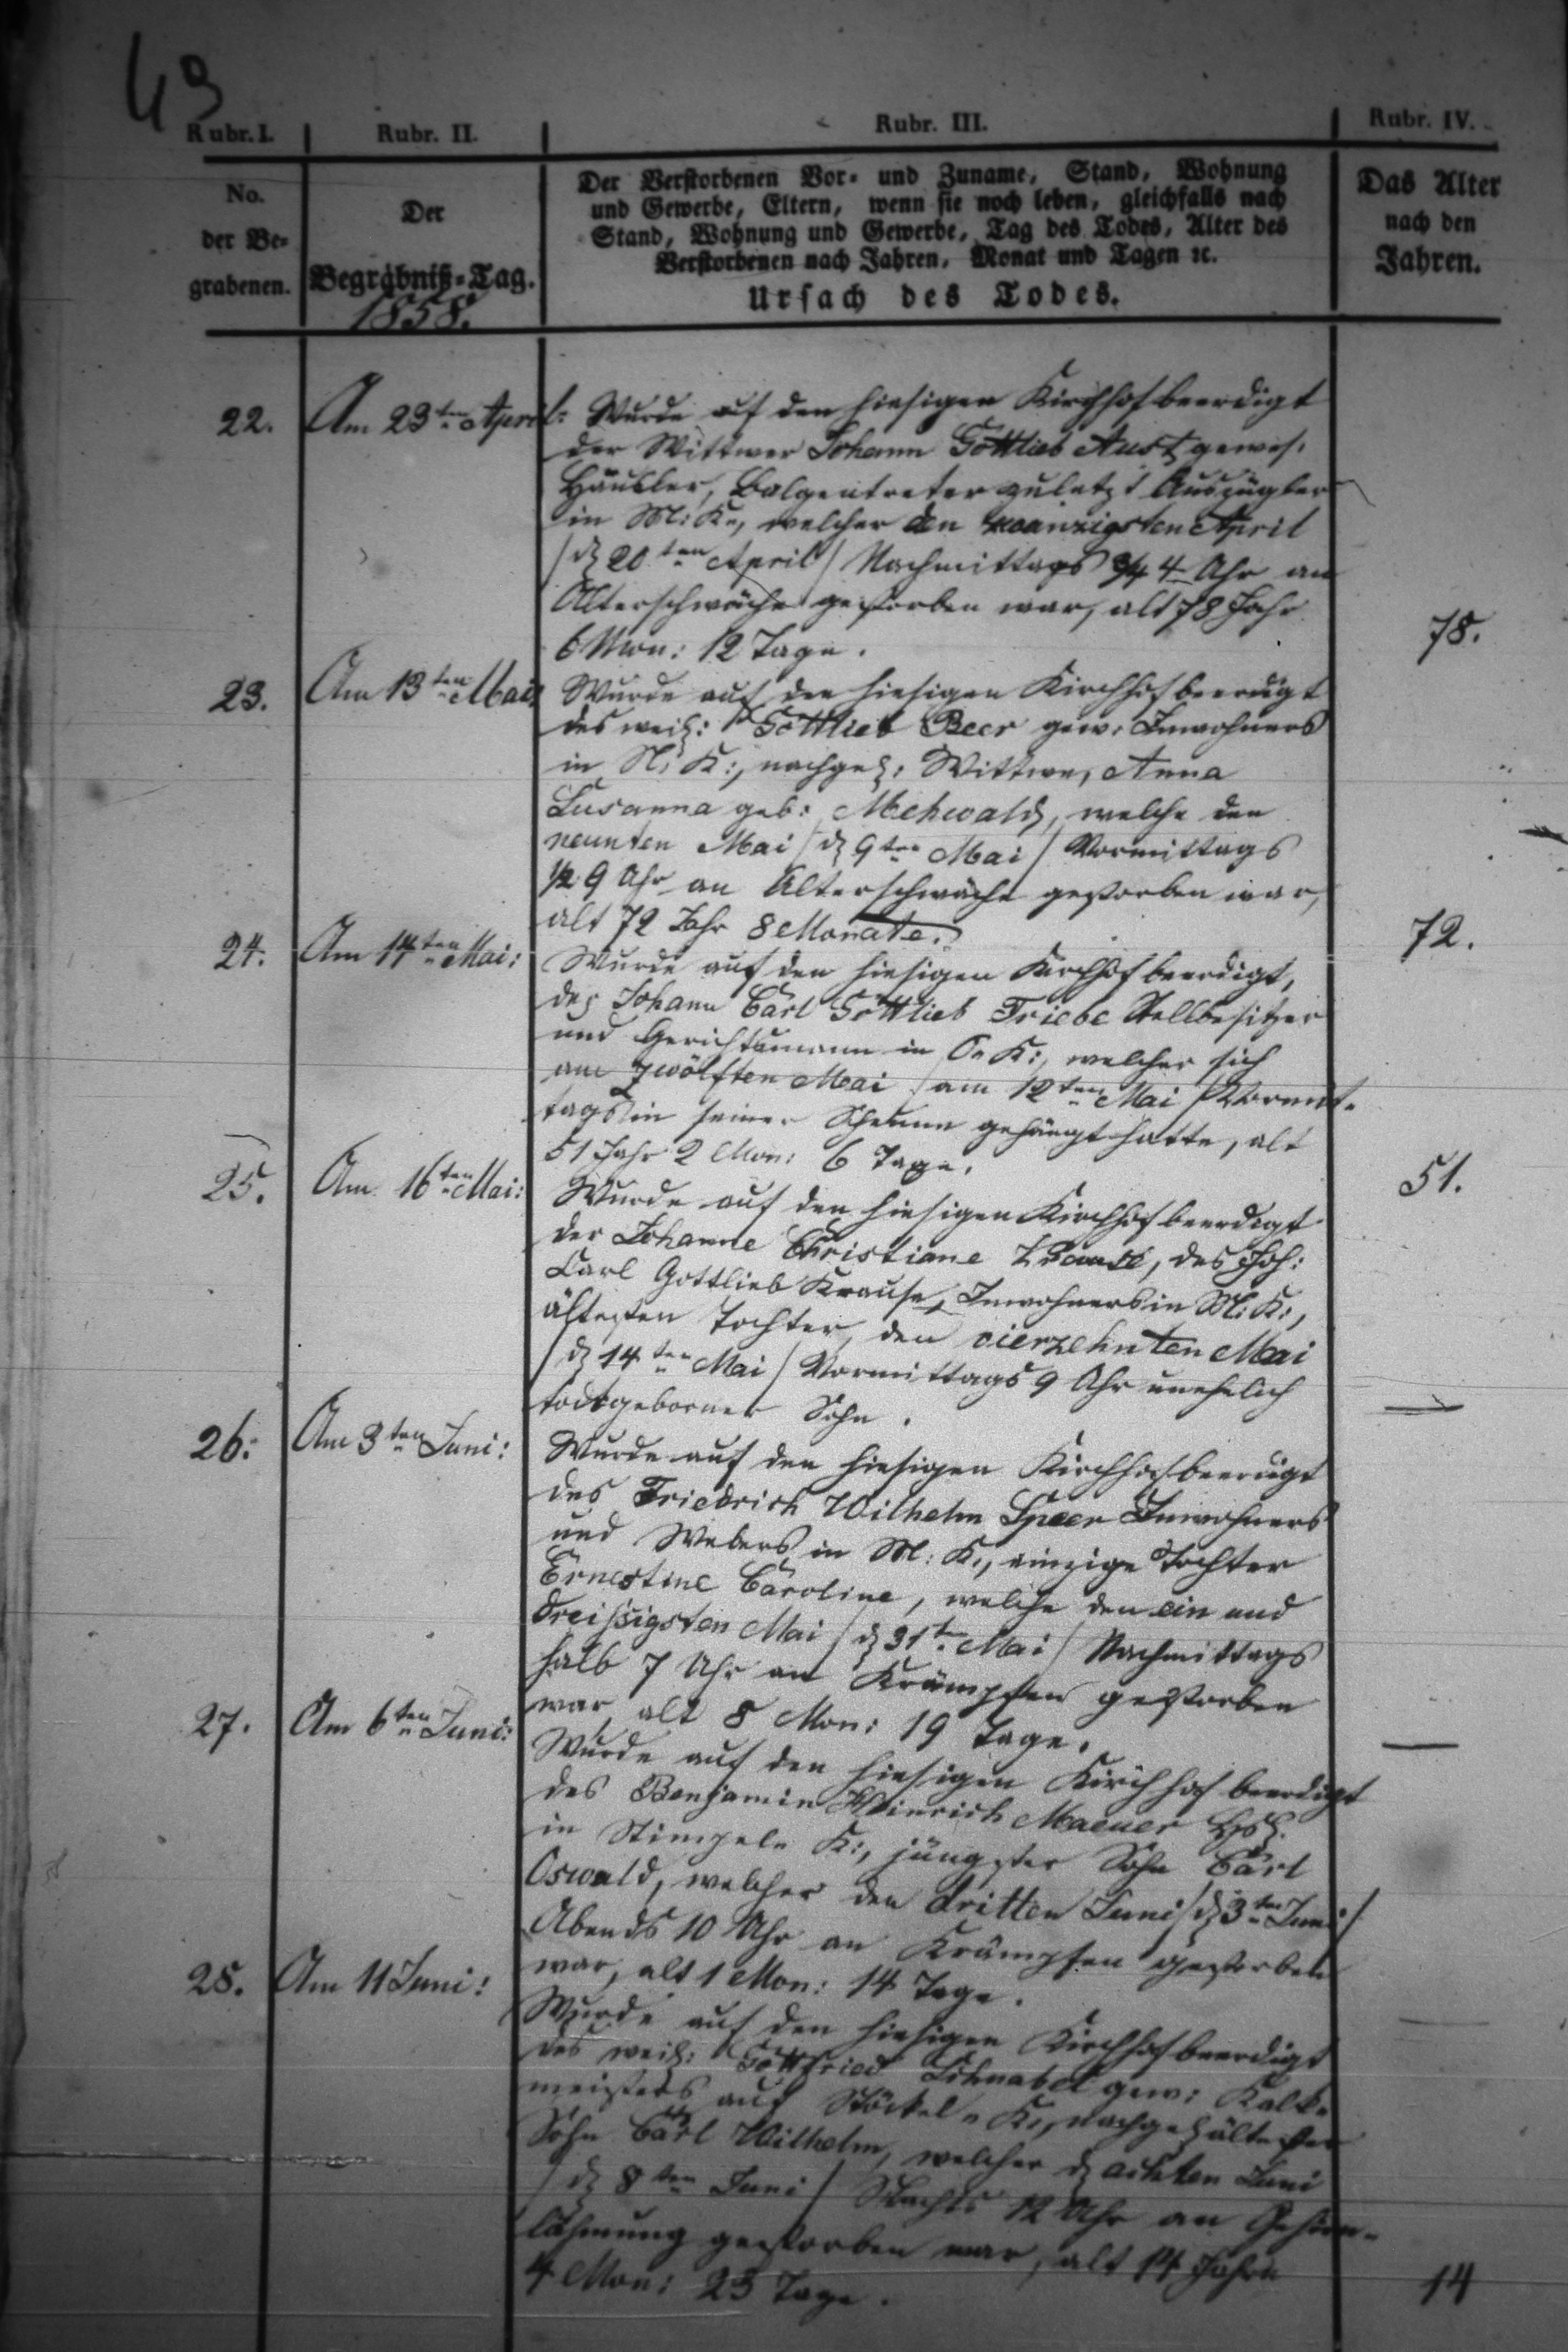 49
Rubr. I. Rubr. II. Rubr. III. Rubr. IV.
No. der Be-grabenen.
Der Begräbniß-Tag. 1858.
Der Verstorbenen Vor- und Zuname, Stand, Wohnung
und Gewerbe, Eltern, wenn sie noch leben, gleichfalls nach
Stand, Wohnung und Gewerbe, Tag des Todes, Alter des
Verstorbenen nach Jahren, Monat und Tagen ꝛc.
Ursach des Todes.
Das Alter nach den Jahren.
22. Am 23ten April: Wurde auf den hiesigen Kirchhof beerdigt
der Wittwer Johann Gottlieb Aust gewes.
Häusler, Balgentreter zuletzt Auszügler
in M: K., welcher den zwanzigsten April
/ d 20ten April / Nachmittags 3/4 4 Uhr an
Alterschwäche gestorben war, alt 78 Jahr
6 Mon: 12 Tage. 78.
23. Am 13ten Mai: Wurde auf den hiesigen Kirchhof beerdigt
des weil: Gottlieb Beer gew: Inwohners
in N: K:, nachgel: Wittwe, Anna
Susanna geb: Mehwald, welche den
neunten Mai / d 9ten Mai / Vormittags
1/2 9 Uhr an Alterschwäche gestorben war,
alt 72 Jahr 8 Monate. 72.
24. Am 14ten Mai: Wurde auf den hiesigen Kirchhof beerdigt,
der Johann Carl Gottlieb Friebe Stellbesitzer
und Gerichtsmann in O. K:, welcher sich
am zwölften Mai / am 12ten Mai / Vormit-
tags in seiner Scheune gehängt hatte, alt
51 Jahr 2 Mon: 6 Tage. 51.
25. Am 16ten Mai: Wurde auf den hiesigen Kirchhof beerdigt
der Johanne Christiane Krause, des Joh:
Carl Gottlieb Krause, Inwohners in M: K:,
ältesten Tochter, den vierzehnten Mai
/ d 14ten Mai / Vormittags 9 Uhr unehelich
todtgeborner Sohn. —
26. Am 3ten Juni: Wurde auf den hiesigen Kirchhof beerdigt
des Friedrich Wilhelm Speer Inwohners
und Webers in M: K., einzige Tochter
Ernestine Caroline, welche den ein und
dreißigsten Mai / d 31t. Mai / Nachmittags
halb 7 Uhr an Krämpfen gestorben
war, alt 8 Mon: 19 Tage. —
27. Am 6ten Juni: Wurde auf den hiesigen Kirchhof beerdigt
des Benjamin Heinrich Maeuer
in K:, jüngster Sohn Carl
Oswald, welcher den dritten Juni / d 3ten Juni /
Abends 10 Uhr an Krämpfen gestorben
war, alt 1 Mon: 14 Tage. —
28. Am 11 Juni: Wurde auf den hiesigen Kirchhof beerdigt
des weil: Gottfried Schnabel gew: Kalk-
meisters auf K., nachgel ältester
Sohn Carl Wilhelm, welcher d achten Juni
/ d 8ten Juni / Nachts 12 Uhr an Gehirn-
lähmung gestorben war, alt 14 Jahre
4 Mon: 23 Tage. 14